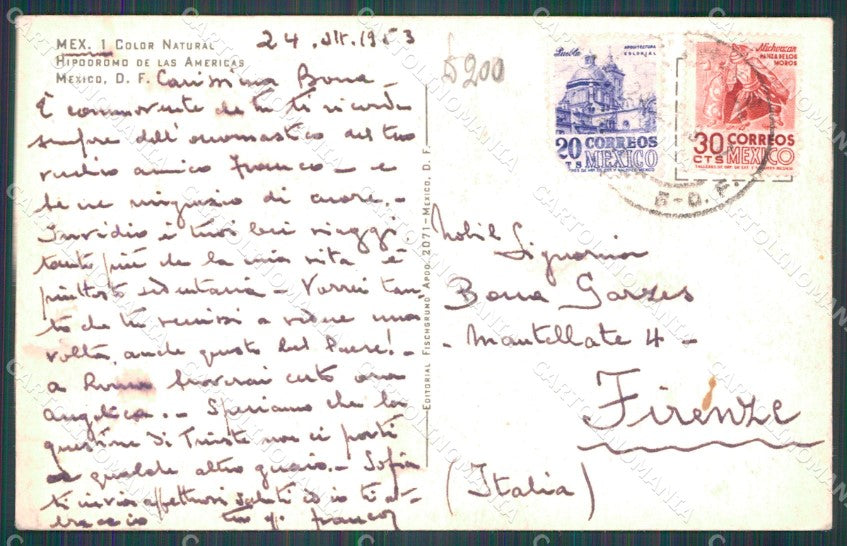 MEX. 1 COLOR NATURAL
HIPODROMO DE LAS AMERICAS
MEXICO, D. F.
24 . Ott. 1953
Carissima Bona
È commovente che tu ti ricordi
sempre dell'onomastico del tuo
vecchio amico Franco - e
te ne ringrazio di cuore. -
Invidio i tuoi bei viaggi,
tanto più che la mia vita è
piuttosto sedentaria - Vorrei tan-
to che tu venissi a vedere una
volta, anche questo bel Paese! -
a Roma troverai certo
Angelica. - Speriamo che la
questione di Trieste non ci porti
qualche altro guaio. - Sofia
ti invia affettuosi saluti ed io ti ab-
braccio tuo Franco
EDITORIAL FISCHGRUND APDO. 2071-MEXICO, D. F.
$200
Puebla
ARQUITECTURA COLONIAL
20 CORREOS
CTS MEXICO
Michoacan
DANZA DE LOS MOROS
30 CORREOS
CTS MEXICO
D. F.
Nobil Signorina
Bona Garzes
- Mantellate 4 -
Firenze
(Italia)
CARTOLINOMANIA